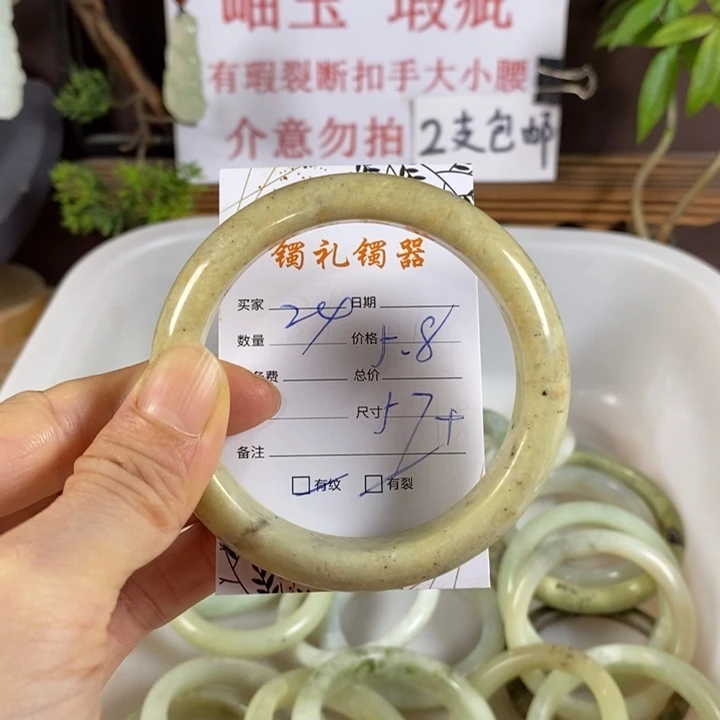 岫玉 瑕疵
有瑕裂断扣手大小腰
介意勿拍 2支包邮
镯礼镯器
买家 24 日期
数量 价格 5.8
费 总价
尺寸 57+
备注
有纹 有裂